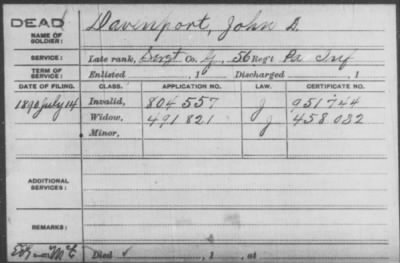 DEAD
NAME OF SOLDIER: Davenport, John D.
SERVICE: Late rank, Sergt Co. G, 56 Reg't Pa Inf
TERM OF SERVICE: Enlisted , 1 Discharged , 1
DATE OF FILING. CLASS. APPLICATION NO. LAW. CERTIFICATE NO.
1890 July 14 Invalid, 804 557 J 951744
Widow, 491 821 J 458 032
Minor,
ADDITIONAL SERVICES:
REMARKS:
Died , 1 , at